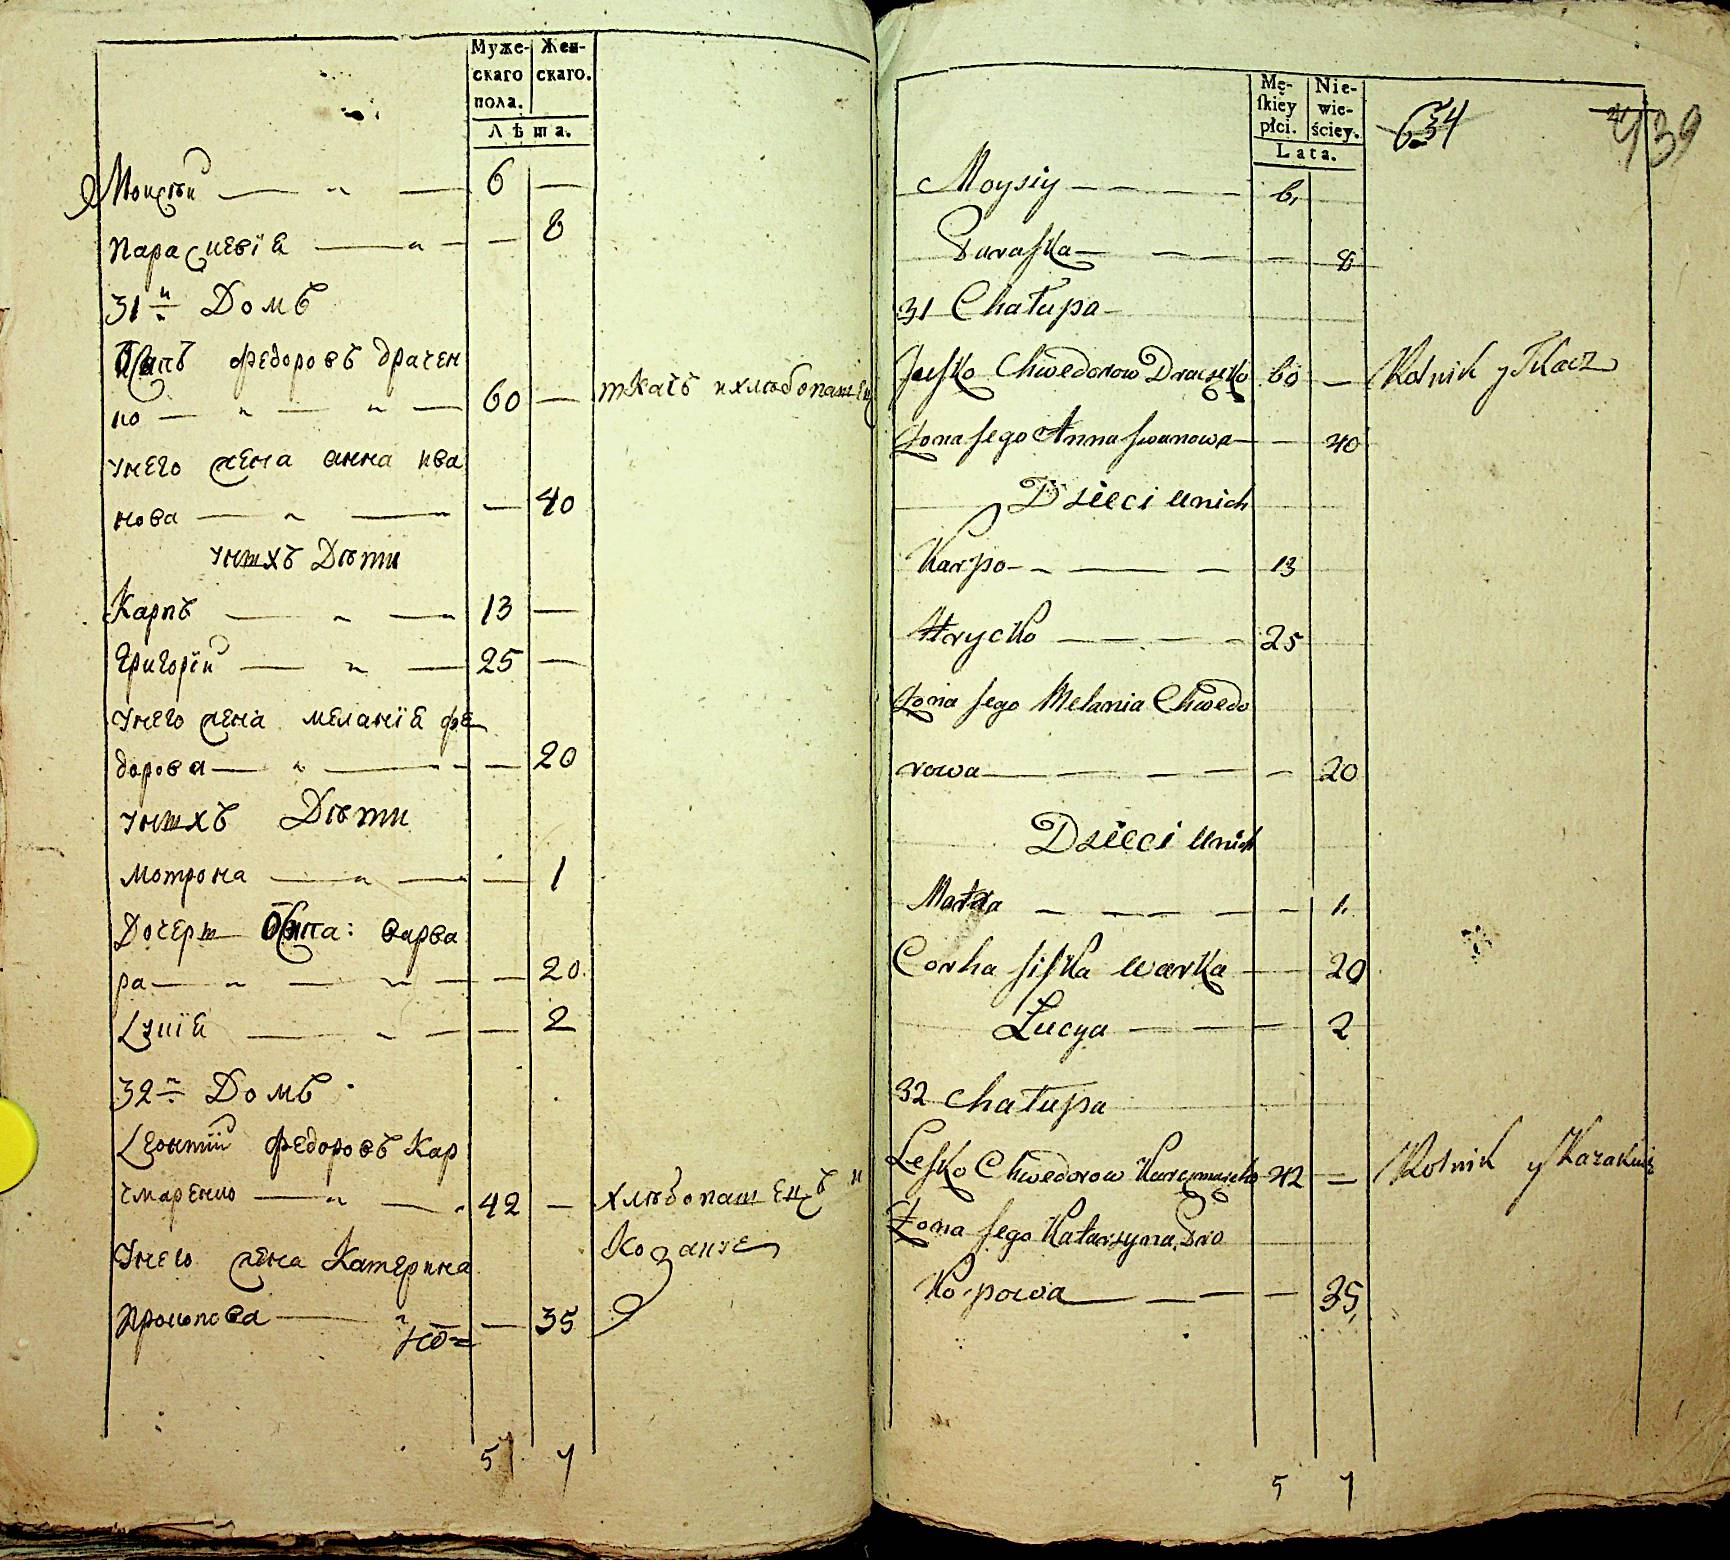 Муже- Жен-
скаго скаго.
пола.
Лѣта.
Моисѣй 6 —
Параскевїя — 8
31й Домъ
Осипъ Федоровъ Драчен
ко 60 — ткачь и хлѣбопашец
у него жена анна ива
нова — 40
у нихъ Дѣти
Карпъ 13 —
Григорїй 25 —
у него жена меланїя фе
дорова — 20
у нихъ Дѣти
мотрона — 1
Дочери Осипа: варва
ра — 20
Луція — 2
32й Домъ
Леонтїй Федоровъ Кар
чмаренко 42 — хлѣбопашецъ и
у него жена Катерина
Прокопова — 35
5 7
Mę- Nie-
skiey wie-
płci. ściey.
Lata.
634
439
Moysiy 6
Paraska — 8
31 Chałupa
Josko Chwedorow Draczenko 60 — Rolnik y Tkacz
Żona Jego Anna Jwanowa — 40
Dzieci Unich
Karpo 13
Hrycko 25
Żona Jego Melania Chwedo
rowa — 20
Dzieci Unich
— 1
Corka Warka — 20
Łucya — 2
32 Chałupa
Lesko Chwedorow 42 — Rolnik y
Żona Jego Katarzyna Pro
Kopowa — 35
5 7